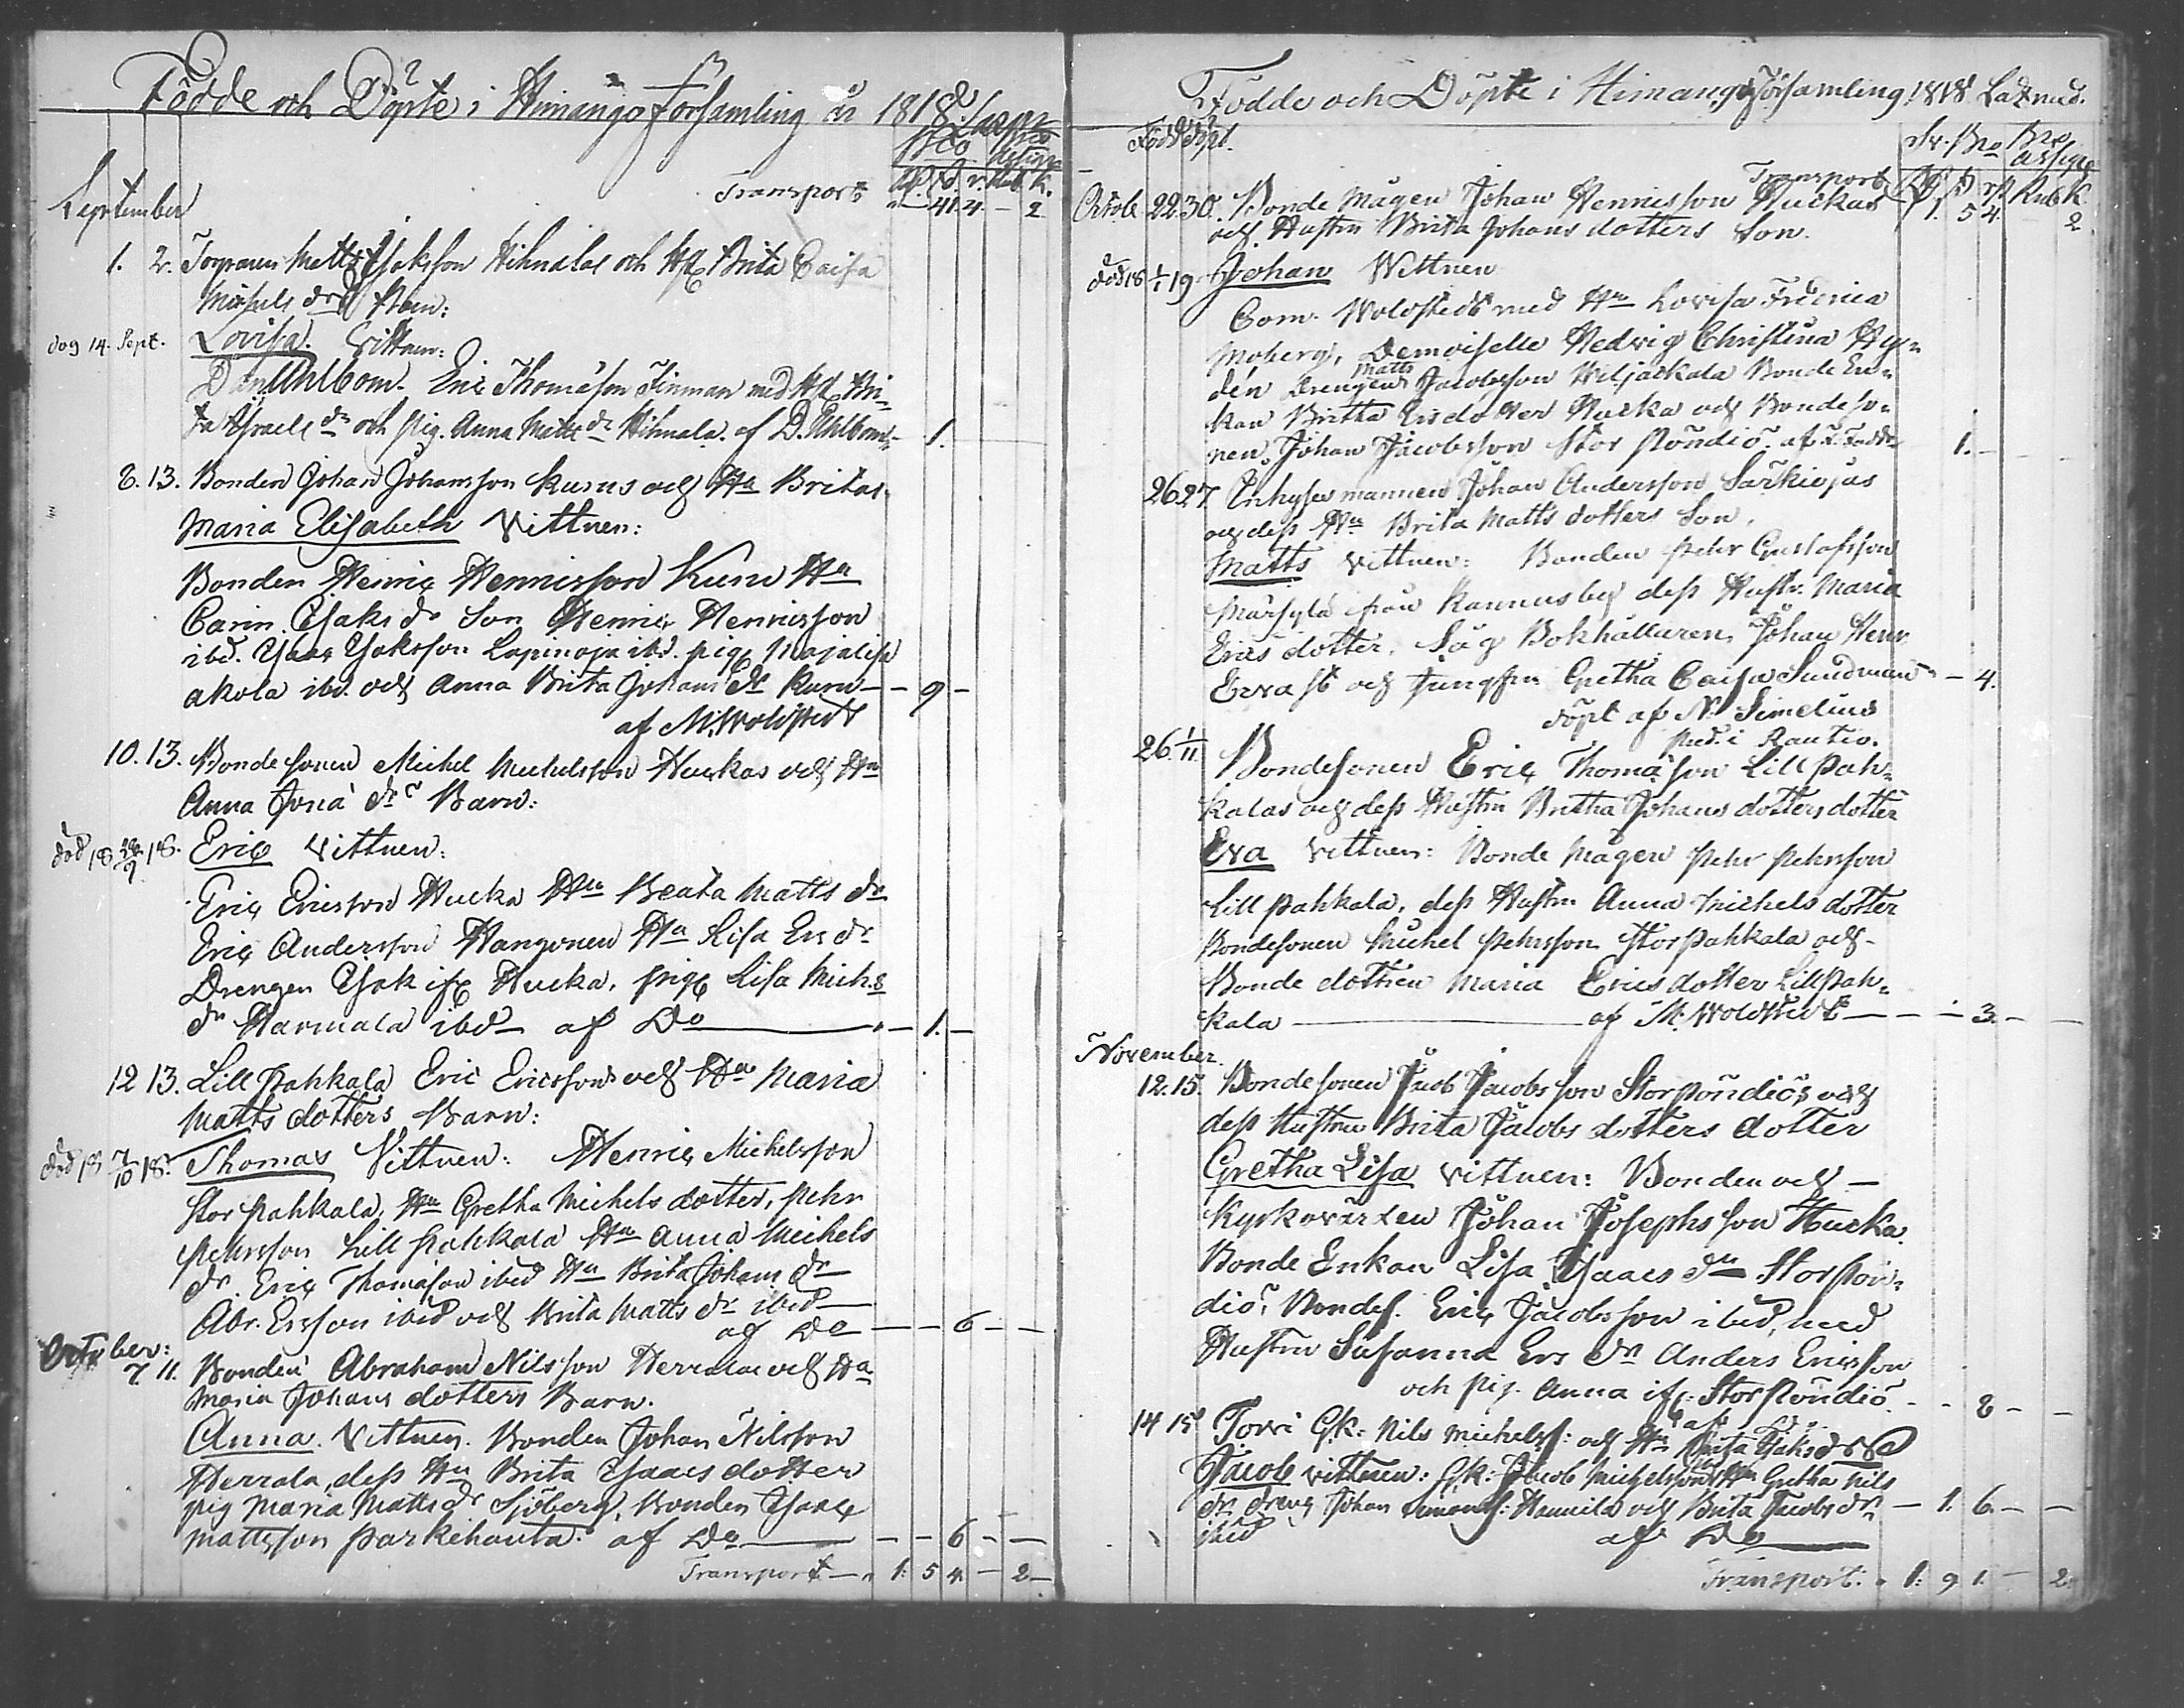 Födde och Döpte i Himango församling år 1818.
Bco
Transport 41. 4. — 2
September
1. 2. Torparen Matts Isaksson Hihnalas och H. Brita Caisa
Michels drs Barn:
dog 14. Sept. Lovisa. Vittnen:
Dan. Ahlbom. Eric Thomasson Finman med H. Bri-
ta Israels dr och pig. Anna Matts dr Hihnala. af D. Ahlbom — 1.
8. 13. Bonden Johan Johansson Kurus och Ha Britas
Maria Elisabeth Vittnen:
Bonden Henric Hennisson Kuru Ha
Carin Isaks dr Son Henric Henricsson
ibd. Isaac Isaksson Lapinoja ibd. pig. Majalisa
akola ibd. och Anna Brita Johans dr Kuru — — 9 —
af M. Woldstedt
10. 13. Bondesonen Michel Michelsson Huckas och Ha
Anna Jona drs Barn:
död 18 26/9 18. Eric Vittnen:
Eric Ericsson Hucka Ha Beata Matts dr
Eric Andersson Hangonen Ha Lisa Ers dr
Drengen Isak if Hucka, pig. Lisa Mich.s
dr Harmala ibd — af Do — 1. —
12 13. Lill Pahkala Eric Ericssons och Ha Maria
Matts dotters Barn:
död 18 7/10 18. Thomas Vittnen: Henric Michelsson
Stor Pahkala, Ha Gretha Michels dotter, Pehr
Pehrsson Lill Pahkala Ha Anna Michels
dr. Eric Thomasson ibid Ha Brita Johans dr
Abr. Ersson ibid och Brita Matts dr ibid —
af Do — — — 6 — —
October:
7. 11. Bonden Abraham Nilsson Herralas och Ha
Maria Johans dotters Barn.
Anna. Vittnen. Bonden Johan Nilsson
Herrala, dess Ha Brita Isaacs dotter
pig Maria Matts dr Sjöberg, Bonden Isaac
Mattsson Parkihauta. af Do — — — 6 — —
Transport — 1. 5 4. — 2 —
Födde och Döpte i Himango församling 1818
Född döpt.
Transport Rub K.
1. 5 4. 2
Octob 22 30. Bonde mågen Johan Hennisson Huckas
och Hustru Brita Johans dotters Son.
död 18 1/1 19 Johan Vittnen
Com. Woldstedt med Ha Lovisa Fredrica
Moberg, Demoiselle Hedvig Christina Hy-
dén Drengen Matts Jacobsson Wiljackala Bonde En-
kan Britta Ersdotter Hucka och Bondeso-
nen Johan Jacobsson Stor Pöndiö. 1. —
26 27 Inhyses mannen Johan Andersson Särkiojas
och dess Ha Brita Matts dotters Son.
Matts Vittnen: Bonden Pehr Gustafsson
Märsylä från Kannusby dess Hustr. Maria
Erics dotter. Såg Bokhållaren Johan Henr.
Ervast och Jungfru Gretha Caisa Sundman — 4.
döpt af N. Simelius
pred. i Rautio.
26. 1/11 Bondesonen Eric Thomasson Lill Pah-
kalas och dess Hustru Britha Johans dotters dotter
Eva Vittnen: Bonde mågen Pehr Pehrsson
Lill Pahkala, dess Hustru Anna Michels dotter
Bondesonen Michel Pehrsson Stor Pahkala och
Bonde dottren Maria Erics dotter Lill Pah-
kala — af M. Woldstedt — — — 3. — —
November
12. 15. Bondesonen Jacob Jacobsson Storpöndiös och
dess Hustru Brita Jacobs dotters dotter
Gretha Lisa Vittnen: Bonden och —
Kyrkovärden Johan Josephsson Hucka.
Bonde Enkan Lisa Isaacs dr Storpön-
diö, Bondes. Eric Jacobsson ibid, med
Hustru Susanna Ers dr Anders Ericsson
och pig. Anna if. Storpöndiö. — — 8 — —
af Do.
14 15 Torri Gk. Nils Michelss: och Ha Brita Isaks drs
Jacob Vittnen: Gk. Jacob Michelsson Ha Gretha Nils
dr. dreng Johan Simonss: Hannila och Brita Jacobs dr. — 1. 6. — —
ibid af Do
Transport. 1. 9 1. — 2.